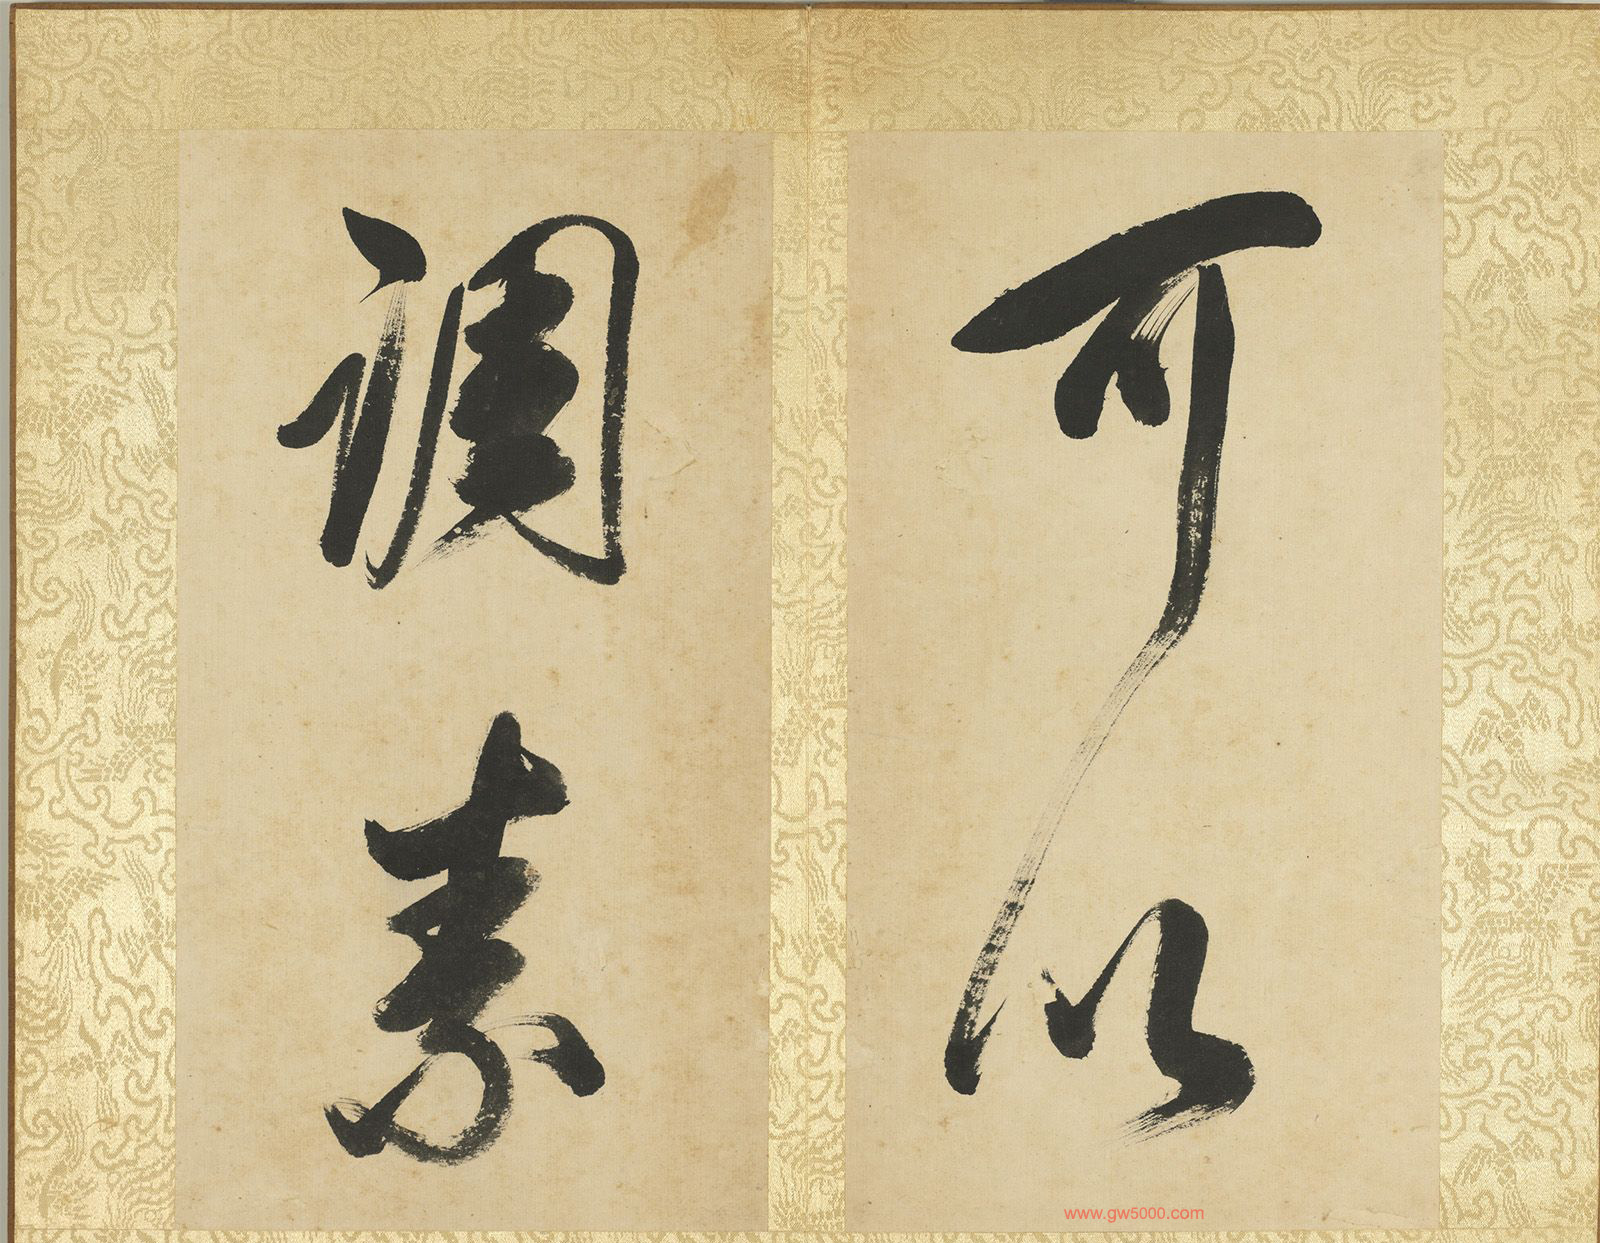 可以
調素
www.gw5000.com